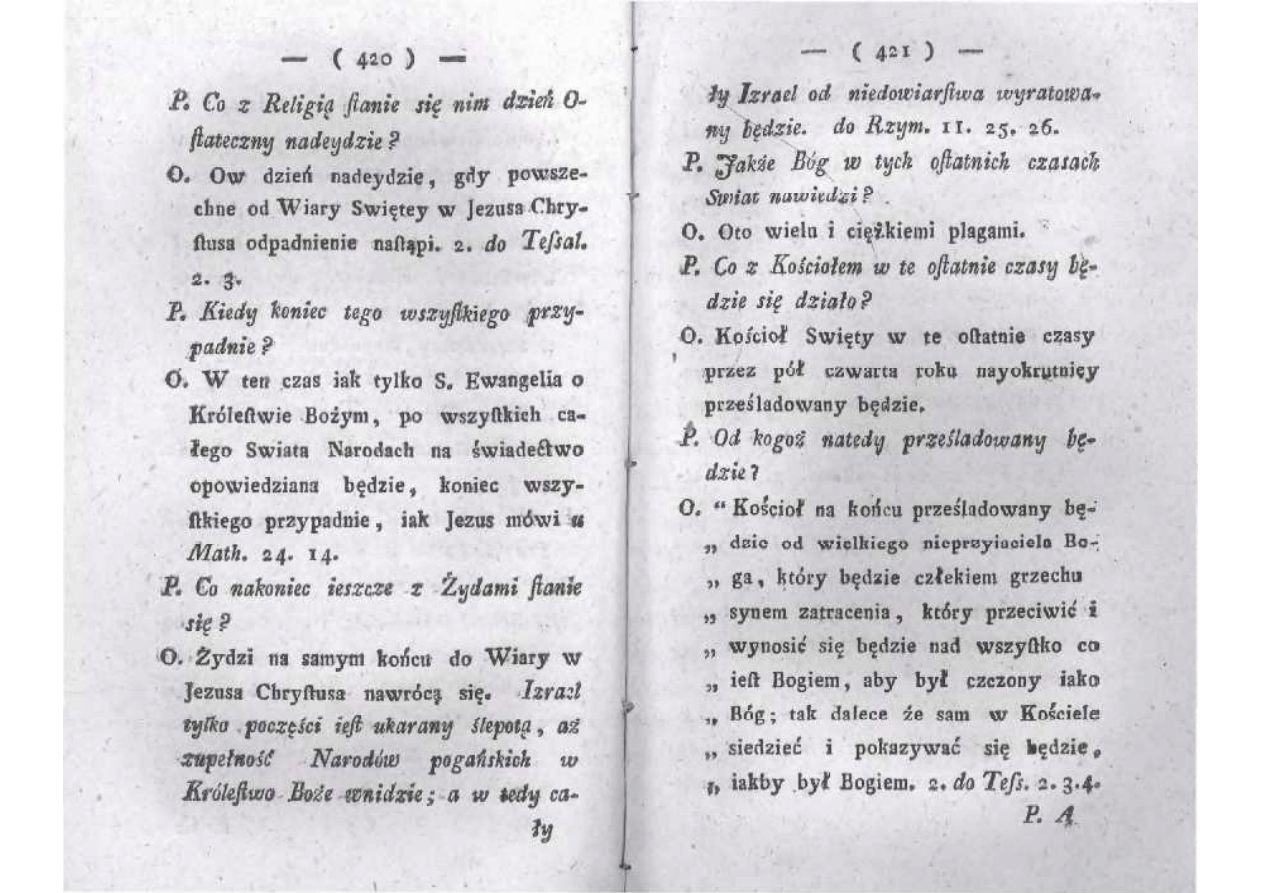 — ( 420 ) —
P. Co z Religią ſtanie się nim dzień O-
ſtateczny nadeydzie?
O. Ow dzień nadeydzie, gdy powsze-
chne od Wiary Swiętey w Jezusa Chry-
ſtusa odpadnienie naſtąpi. 2. do Teſsal.
2. 3.
P. Kiedy koniec tego wszyſtkiego przy-
padnie?
O. W ten czas iak tylko S. Ewangelia o
Króleſtwie Bożym, po wszyſtkich ca-
łego Swiata Narodach na świadectwo
opowiedziana będzie, koniec wszy-
ſtkiego przypadnie, iak Jezus mówi u
Math. 24. 14.
P. Co nakoniec ieszcze z Żydami ſtanie
się?
O. Żydzi na samym końcu do Wiary w
Jezusa Chryſtusa nawrócą się. Izrael
tylko poczęści ieſt ukarany ślepotą, aż
zupełność Narodów pogańskich w
Króleſtwo Boże wnidzie; a w tedy ca-
ły
— ( 421 ) —
ły Izrael od niedowiarſtwa wyratowa-
ny będzie. do Rzym. 11. 25. 26.
P. Jakże Bóg w tych oſtatnich czasach
Swiat nawiedzi?
O. Oto wielu i ciężkiemi plagami.
P. Co z Kościołem w te oſtatnie czasy bę-
dzie się działo?
O. Kościoł Swięty w te oſtatnie czasy
przez pół czwarta roku nayokrutnięy
prześladowany będzie.
P. Od kogoż natedy prześladowany bę-
dzie?
O. “ Kościoł na końcu prześladowany bę-
„ dzie od wielkiego nieprzyiaciela Bo-
„ ga, który będzie człekiem grzechu
„ synem zatracenia, który przeciwić i
„ wynosić się będzie nad wszyſtko co
„ ieſt Bogiem, aby był czczony iako
„ Bóg; tak dalece że sam w Kościele
„ siedzieć i pokazywać się będzie,
„ iakby był Bogiem. 2. do Teſs. 2. 3. 4.
P. A